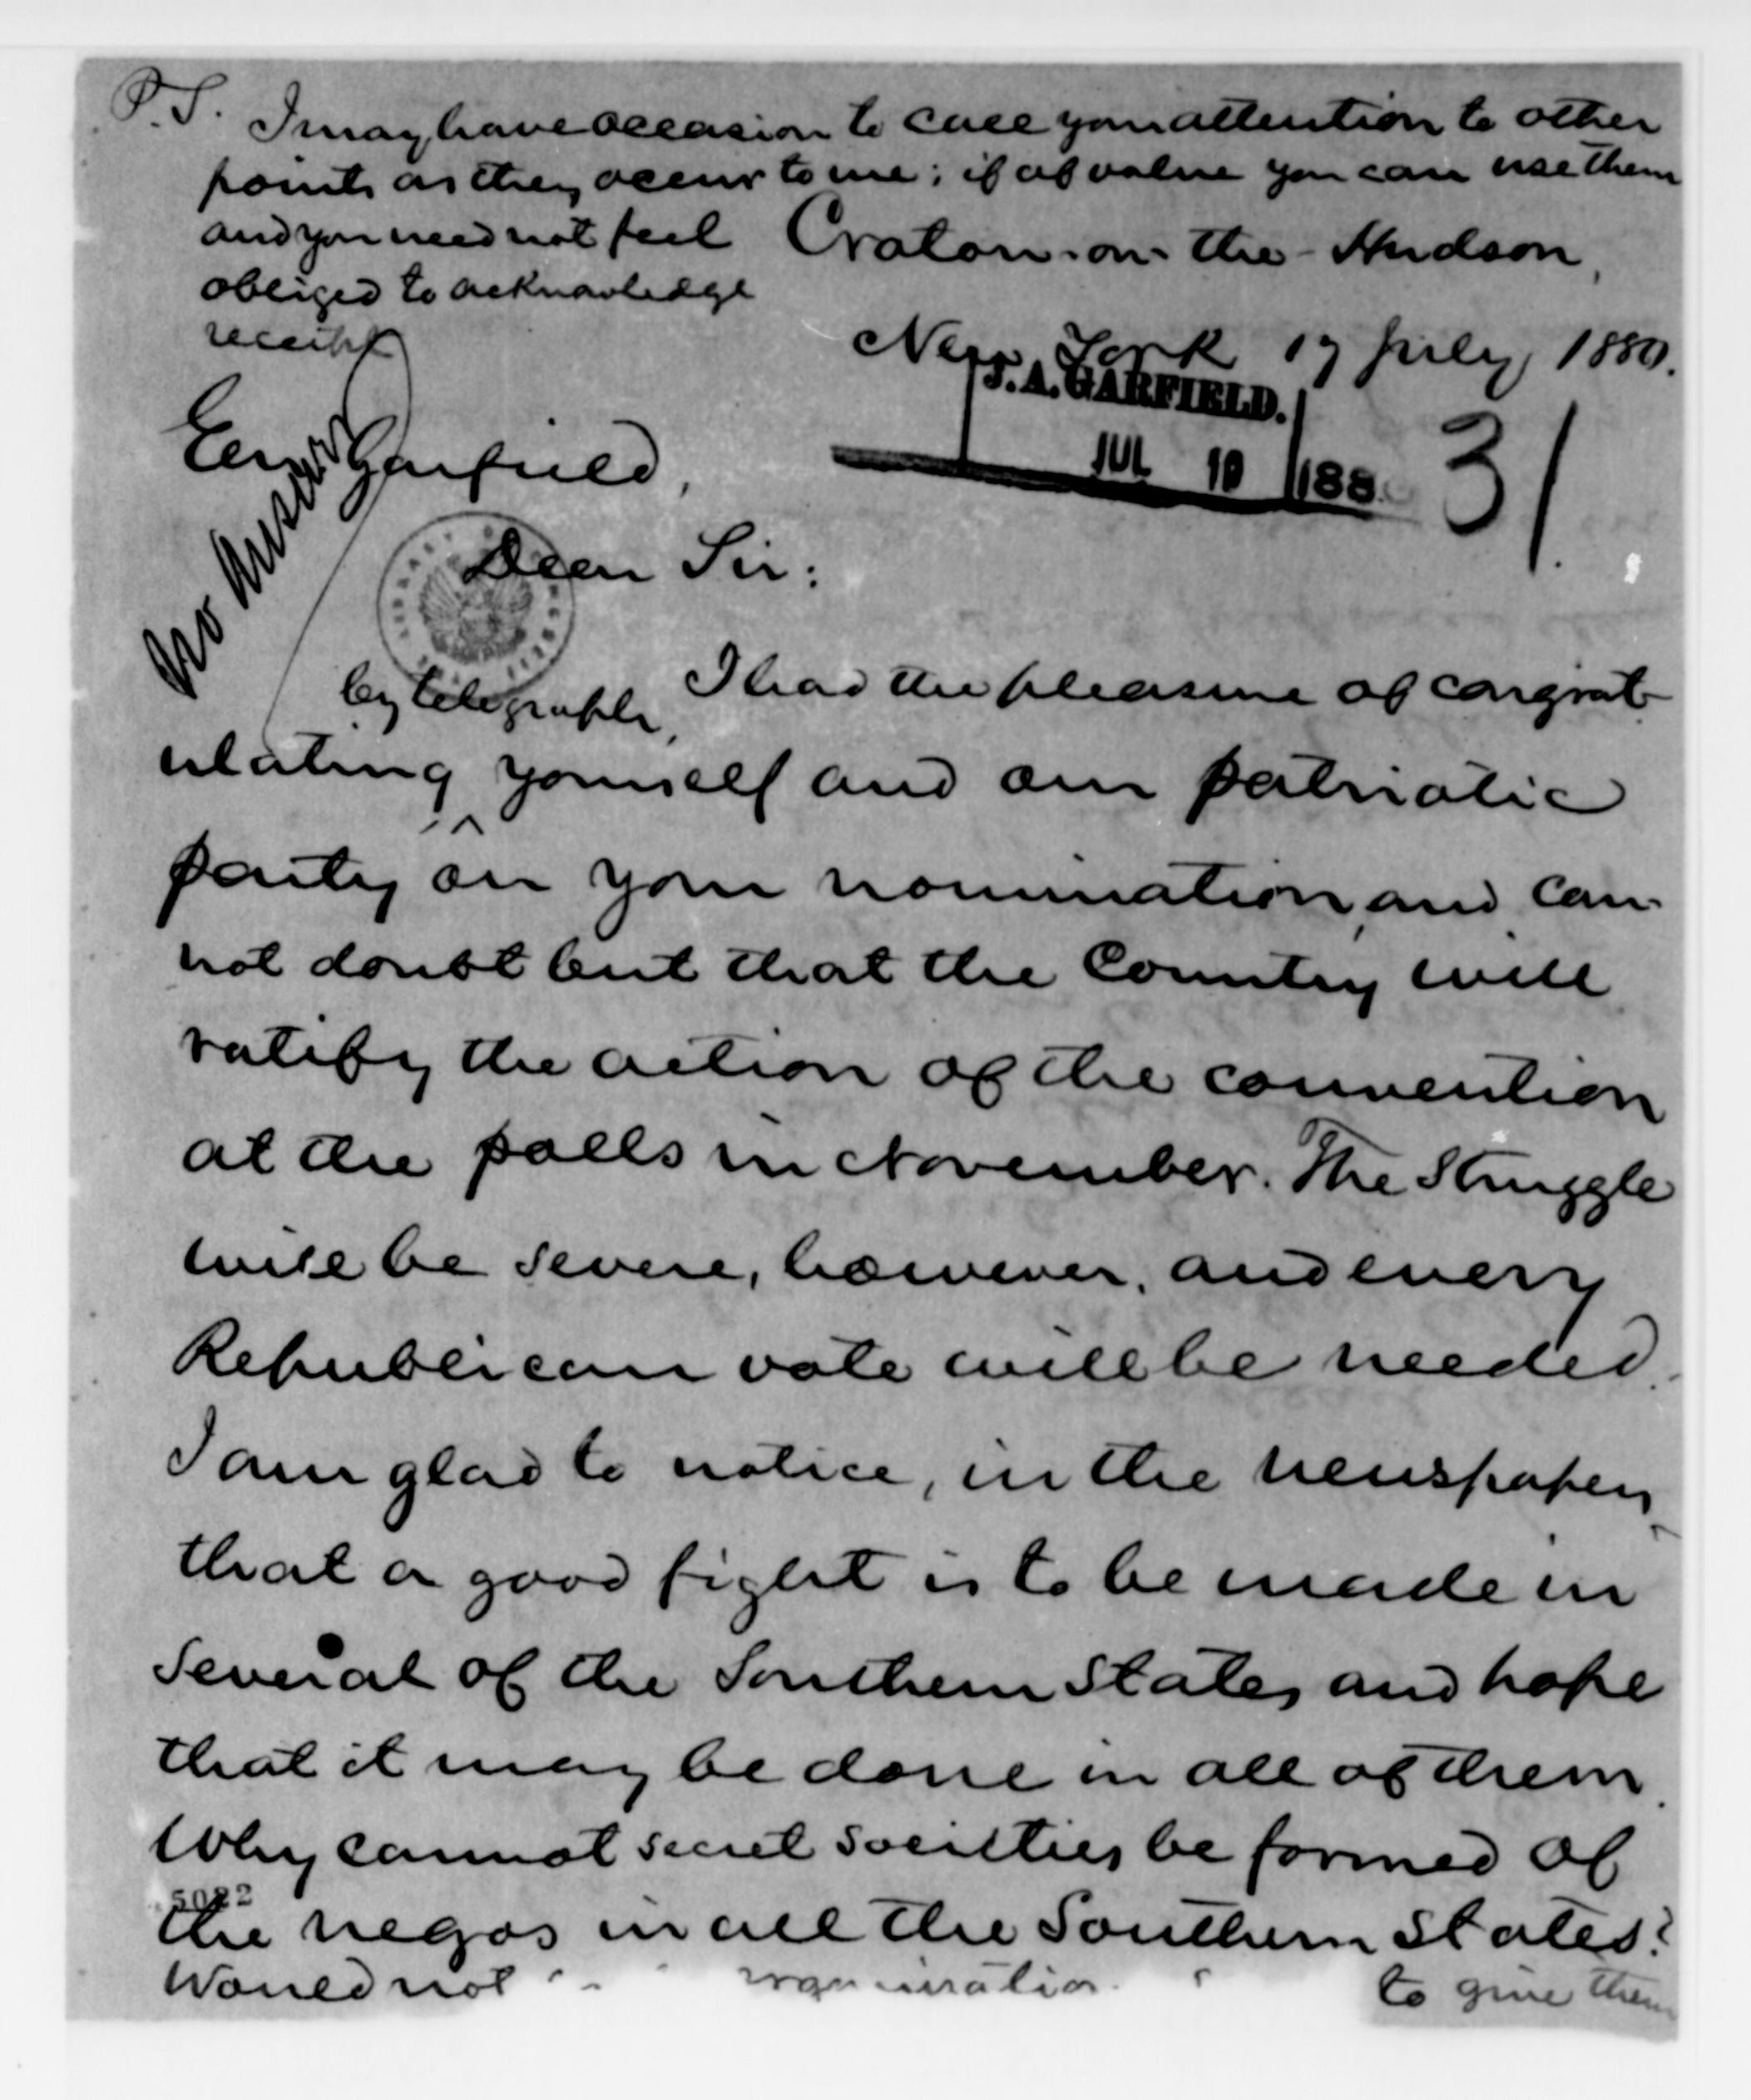 P.S. I may have occasion to call your attention to other
points as they occur to me; if of value you can use them
and you need not feel
obliged to acknowledge
receipt
Croton-on-the-Hudson,
New York 17 July, 1880.
J. A. GARFIELD.
JUL 19 188
31
Genl Garfield,
No Answer
Dear Sir:
I had the pleasure of congrat-
by telegraph,
ulating yourself and our patriotic
party on your nomination, and can-
not doubt but that the Country will
ratify the action of the convention
at the polls in November. The Struggle
will be severe, however, and every
Republican vote will be needed.
I am glad to notice, in the newspapers,
that a good fight is to be made in
several of the Southern States, and hope
that it may be done in all of them.
Why cannot secret societies be formed of
5022
the negos in all the Southern States?
Would not organization to give them